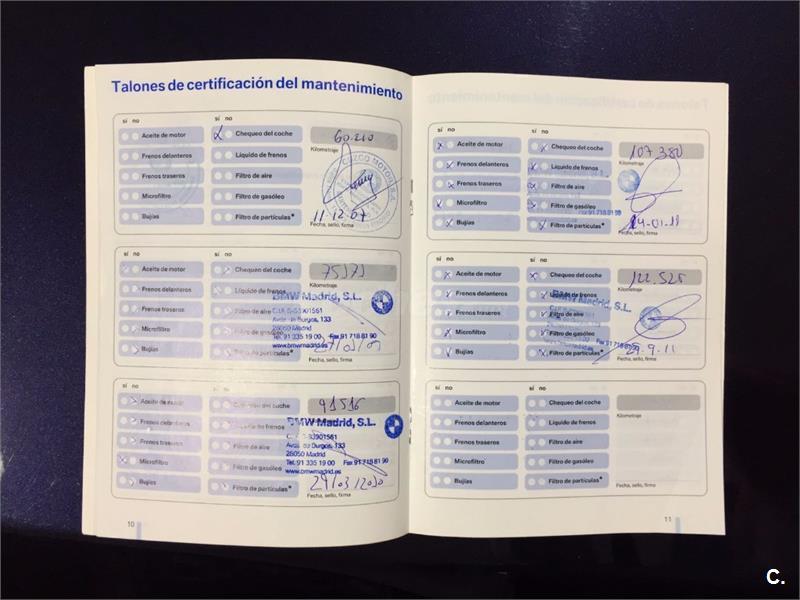 Talones de certificación del mantenimiento
sí no
Aceite de motor
Chequeo del coche
60.210
Frenos delanteros
Líquido de frenos
Kilometraje
Frenos traseros
Filtro de aire
Microfiltro
Filtro de gasóleo
11-12-07
Bujías
Filtro de partículas*
Fecha, sello, firma
sí no
sí no
Aceite de motor
Chequeo del coche
75171
Frenos delanteros
Líquido de frenos
Kilometraje
BMW Madrid, S.L.
Frenos traseros
Filtro de aire
Avda. de Burgos, 133
28050 Madrid
Microfiltro
Filtro de gasóleo
Tel. 91 335 19 00 Fax 91 718 81 90
www.bmwmadrid.es
Bujías
Filtro de partículas*
Fecha, sello, firma
sí no
sí no
Aceite de motor
Chequeo del coche
91516
Frenos delanteros
Líquido de frenos
BMW Madrid, S.L.
Frenos traseros
Filtro de aire
Avda. de Burgos, 133
28050 Madrid
Microfiltro
Filtro de gasóleo
Tel. 91 335 19 00 Fax 91 718 81 90
www.bmwmadrid.es
Bujías
Filtro de partículas*
29/03/2010
Fecha, sello, firma
10
sí no
sí no
Aceite de motor
Chequeo del coche
107.380
Frenos delanteros
Líquido de frenos
Kilometraje
Frenos traseros
Filtro de aire
Microfiltro
Filtro de gasóleo
Bujías
Filtro de partículas*
Fecha, sello, firma
sí no
sí no
Aceite de motor
Chequeo del coche
122.525
Frenos delanteros
Líquido de frenos
Kilometraje
BMW Madrid, S.L.
Frenos traseros
Filtro de aire
Microfiltro
Filtro de gasóleo
Bujías
Filtro de partículas*
29.9.11
Fecha, sello, firma
sí no
sí no
Aceite de motor
Chequeo del coche
Frenos delanteros
Líquido de frenos
Kilometraje
Frenos traseros
Filtro de aire
Microfiltro
Filtro de gasóleo
Bujías
Filtro de partículas*
Fecha, sello, firma
11
C.